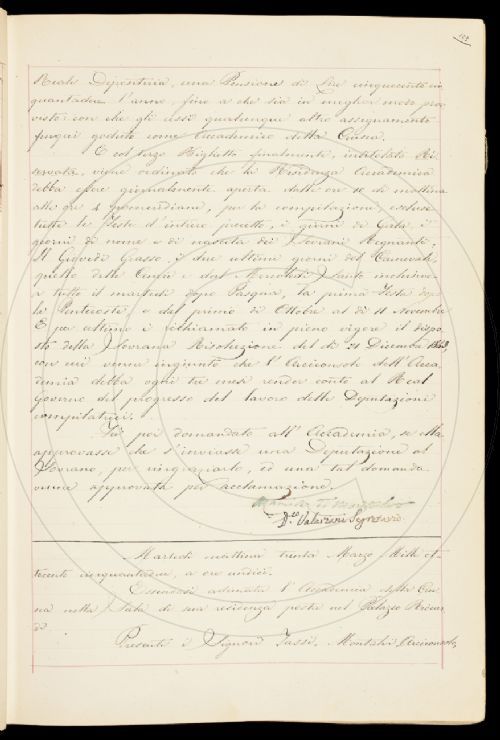 Reale Depositeria, una Pensione di Lire cinquecento cin
quantadue l'anno, fino a che sia in miglior modo prov
visto: con che gli cessi qualunque altro assegnamento
finqui goduto come Accademico della Crusca.
E col terzo Biglietto finalmente, intitolato Ri
servata, viene ordinato che la Residenza Accademica
debba essere giornalmente aperta dalle ore 10 di mattina
alle ore 4 pomeridiane, per la compilazione, escluse
tutte le Feste d'intiero precetto, i giorni di Gala, i
giorni di nome e di nascita dei Sovrani Regnanti,
Il Giovedì Grasso, i due ultimi giorni del Carnevale,
quello delle Ceneri e dal Mercoledì Santo inclusive
a tutto il martedì dopo Pasqua, la prima Festa del
la Pentecoste, e dal primo di Ottobre al dì 11 Novembre
E per ultimo è richiamato in pieno vigore il dispo
sto della Sovrana Risoluzione del dì 21 Dicembre
con cui venne ingiunto che l'Arciconsolo dell'Acca
demia debba ogni tre mesi render conto al Real
Governo del progresso del lavoro delle Deputazioni
compilatrici.
Fu poi domandato all'Accademia, se ella
approvasse che s'inviasse una Deputazione al
Sovrano, per ringraziarlo, ed una tal domanda
venne approvata per acclamazione.
D.co Valeriani Segretario
Martedì mattina trenta Marzo Mille ot
tocento cinquantadue, a ore undici.
Essendosi adunata l'Accademia della Cru
sca nella Sala di sua residenza posta nel Palazzo Riccar
di
Presenti i Signori Tassi, Montalvi Arciconsolo,